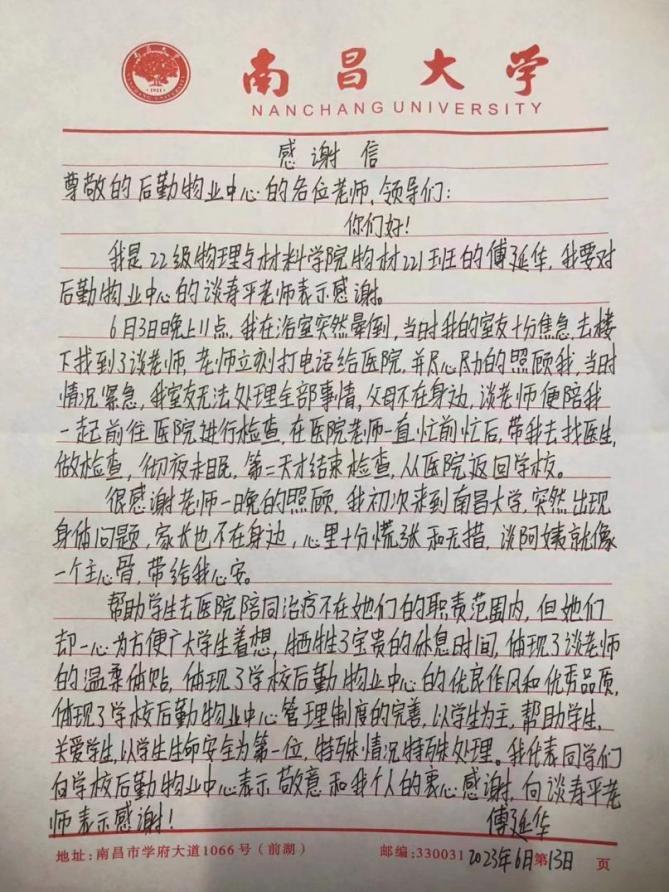 南昌大学
NANCHANG UNIVERSITY
感谢信
尊敬的后勤物业中心的各位老师、领导们:
你们好!
我是22级物理与材料学院物材221班的傅延华,我要对
后勤物业中心的谈寿平老师表示感谢。
6月3日晚上11点,我在浴室突然晕倒,当时我的室友十分焦急,去楼
下找到了谈老师,老师立刻打电话给医院,并尽心尽力的照顾我,当时
情况紧急,我室友无法处理全部事情,父母不在身边,谈老师便陪我
一起前往医院进行检查,在医院老师一直忙前忙后,带我去找医生,
做检查,彻夜未眠,第二天才结束检查,从医院返回学校。
很感谢老师一晚的照顾,我初次来到南昌大学,突然出现
身体问题,家长也不在身边,心里十分慌张和无措,谈阿姨就像
一个主心骨,带给我心安。
帮助学生去医院陪同治疗不在她们的职责范围内,但她们
却一心为方便广大学生着想,牺牲了宝贵的休息时间,体现了谈老师
的温柔体贴,体现了学校后勤物业中心的优良作风和优秀品质,
体现了学校后勤物业中心管理制度的完善,以学生为主,帮助学生,
关爱学生,以学生生命安全为第一位,特殊情况特殊处理。我代表同学们
向学校后勤物业中心表示敬意和我个人的衷心感谢,向谈寿平老
师表示感谢!
傅延华
地址:南昌市学府大道1066号(前湖) 邮编:330031 2023年6月第13日 页